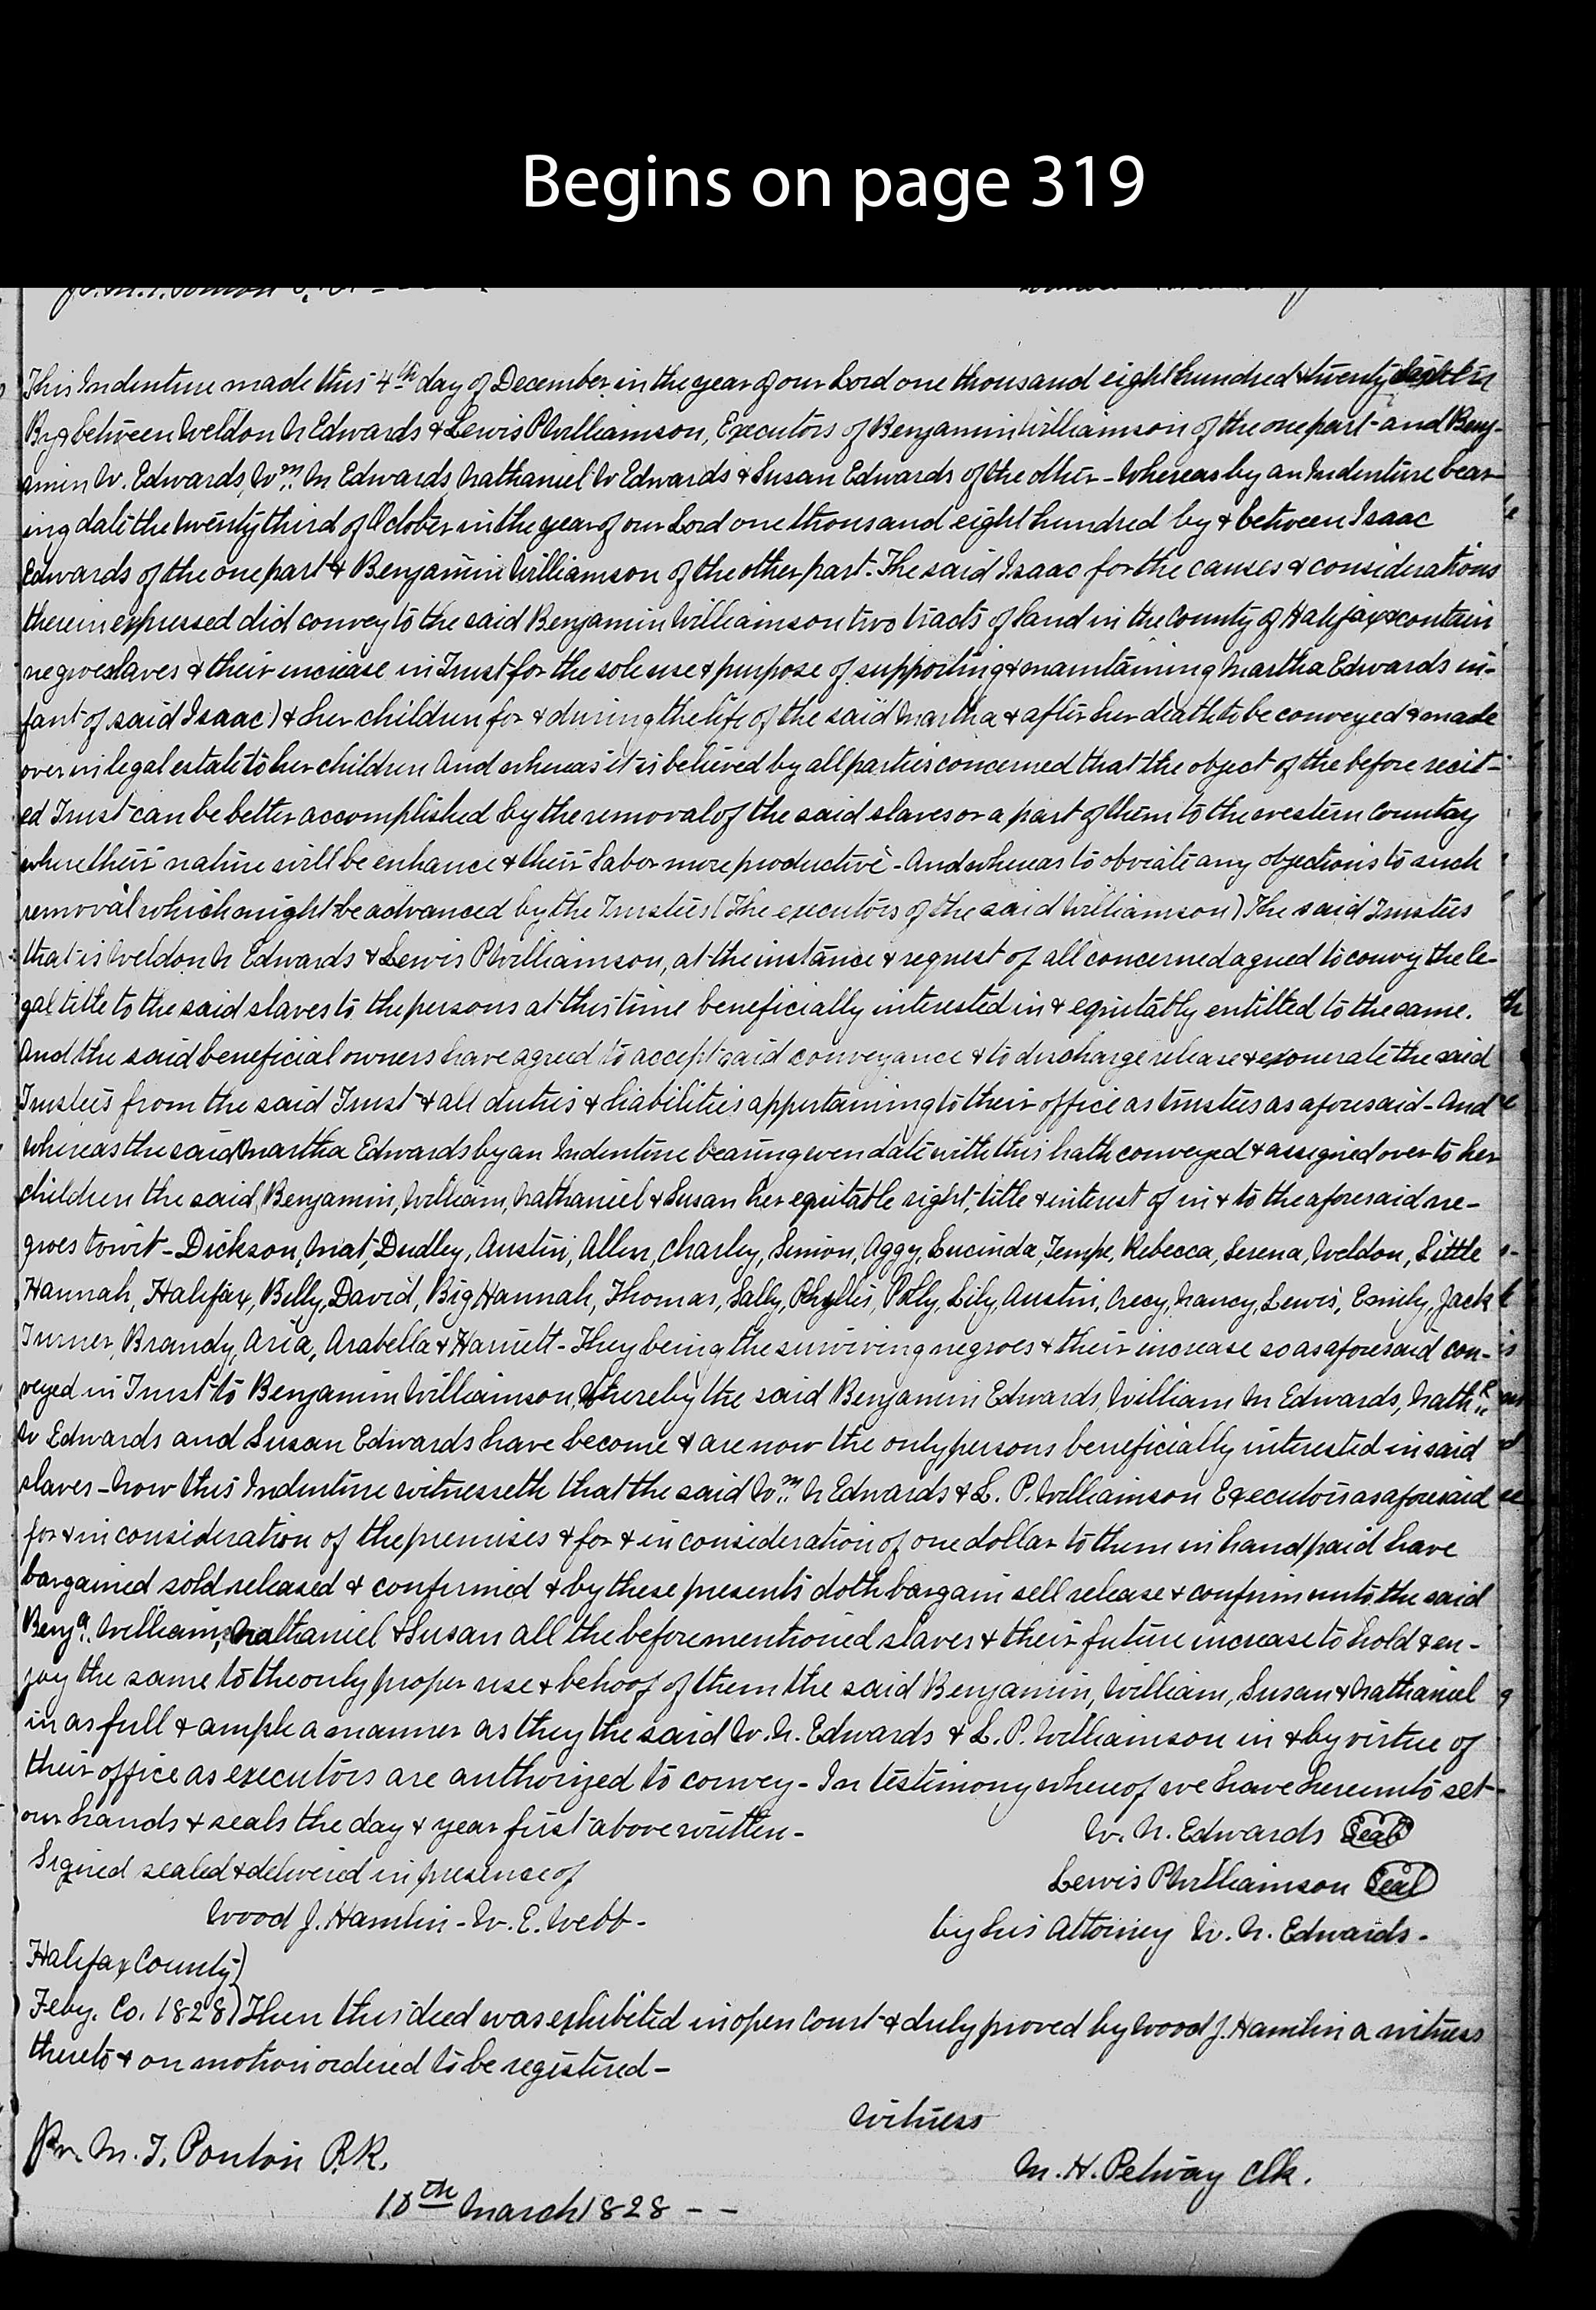 Begins on page 319
This Indenture made this 4th day of December in the year of our Lord one thousand eight hundred & twenty
between Weldon N Edwards & Lewis P Williamson, Executors of Benjamin Williamson of the one part - and Benj-
amin W. Edwards, Wm. M Edwards, Nathaniel W Edwards & Susan Edwards of the other - Whereas by an Indenture bear-
ing date the twenty third of October in the year of our Lord one thousand eight hundred by & between Isaac
Edwards of the one part & Benjamin Williamson of the other part. The said Isaac for the causes & considerations
therein expressed did convey to the said Benjamin Williamson two tracts of land in the County of Halifax & contain
negroe slaves & their increase in Trust for the sole use & purpose of supporting & maintaining Martha Edwards in-
fant of said Isaac) & her children for & during the life of the said Martha & after her death to be conveyed & made
over in legal estate to her children And whereas it is believed by all parties concerned that the object of the before recit-
ed Trust can be better accomplished by the removal of the said slaves or a part of them to the western Country
where their nature will be enhance & their labor more productive - And whereas to obviate any objections to such
removal which might be advanced by the Trustees (The executors of the said Williamson) The said Trustees
that is Weldon N Edwards & Lewis P Williamson, at the instance & request of all concerned agreed to convey the le-
gal title to the said slaves to the persons at this time beneficially interested in & equitably entitled to the same.
And the said beneficial owners have agreed to accept said conveyance & to discharge release & exonerate the said
Trustees from the said Trust & all duties & liabilities appertaining to their office as trustees as aforesaid - And
whereas the said Martha Edwards by an Indenture bearing even date with this hath conveyed & assigned over to her
children the said Benjamin, William, Nathaniel & Susan her equitable right, title & interest of in & to the aforesaid ne-
groes towit - Dickson, Mat, Dudley, Austin, Allen, Charley, Simon, Aggy, Lucinda, Tempe, Rebecca, Serena, Weldon, Little
Hannah, Halifax, Billy, David, Big Hannah, Thomas, Sally, Phyllis, Polly, Lily, Austin, Crecy, Nancy, Lewis, Emily, Jack
Turner, Brandy, Aria, Arabella & Harriett - They being the surviving negroes & their increase so as aforesaid con-
veyed in Trust to Benjamin Williamson, Whereby the said Benjamin Edwards, William M Edwards, Nathl.
W Edwards and Susan Edwards have become & are now the only persons beneficially interested in said
slaves - Now this Indenture witnesseth that the said Wm. N Edwards & L. P. Williamson Executors as aforesaid
for & in consideration of the premises & for & in consideration of one dollar to them in hand paid have
bargained sold released & confirmed & by these presents doth bargain sell release & confirm unto the said
Benja. William, Nathaniel & Susan all the before mentioned slaves & their future increase to hold & en-
joy the same to the only proper use & behoof of them the said Benjamin, William, Susan & Nathaniel
in as full & ample a manner as they the said W. N. Edwards & L. P. Williamson in & by virtue of
their office as executors are authorized to convey - In testimony whereof we have hereunto set
our hands & seals the day & year first above written -
W. N. Edwards Seal
Signed sealed & delivered in presence of
Lewis P Williamson Seal
Wood J. Hamlin - W. E. Webb -
by his Attorney W. N. Edwards -
Halifax County)
Feby. Co. 1828) Then this deed was exhibited in open Court & duly proved by Wood J. Hamlin a witness
thereto & on motion ordered to be registered -
Witness
Pr. M. T. Ponton P.R.
M. H. Petway Clk.
10th March 1828 - -